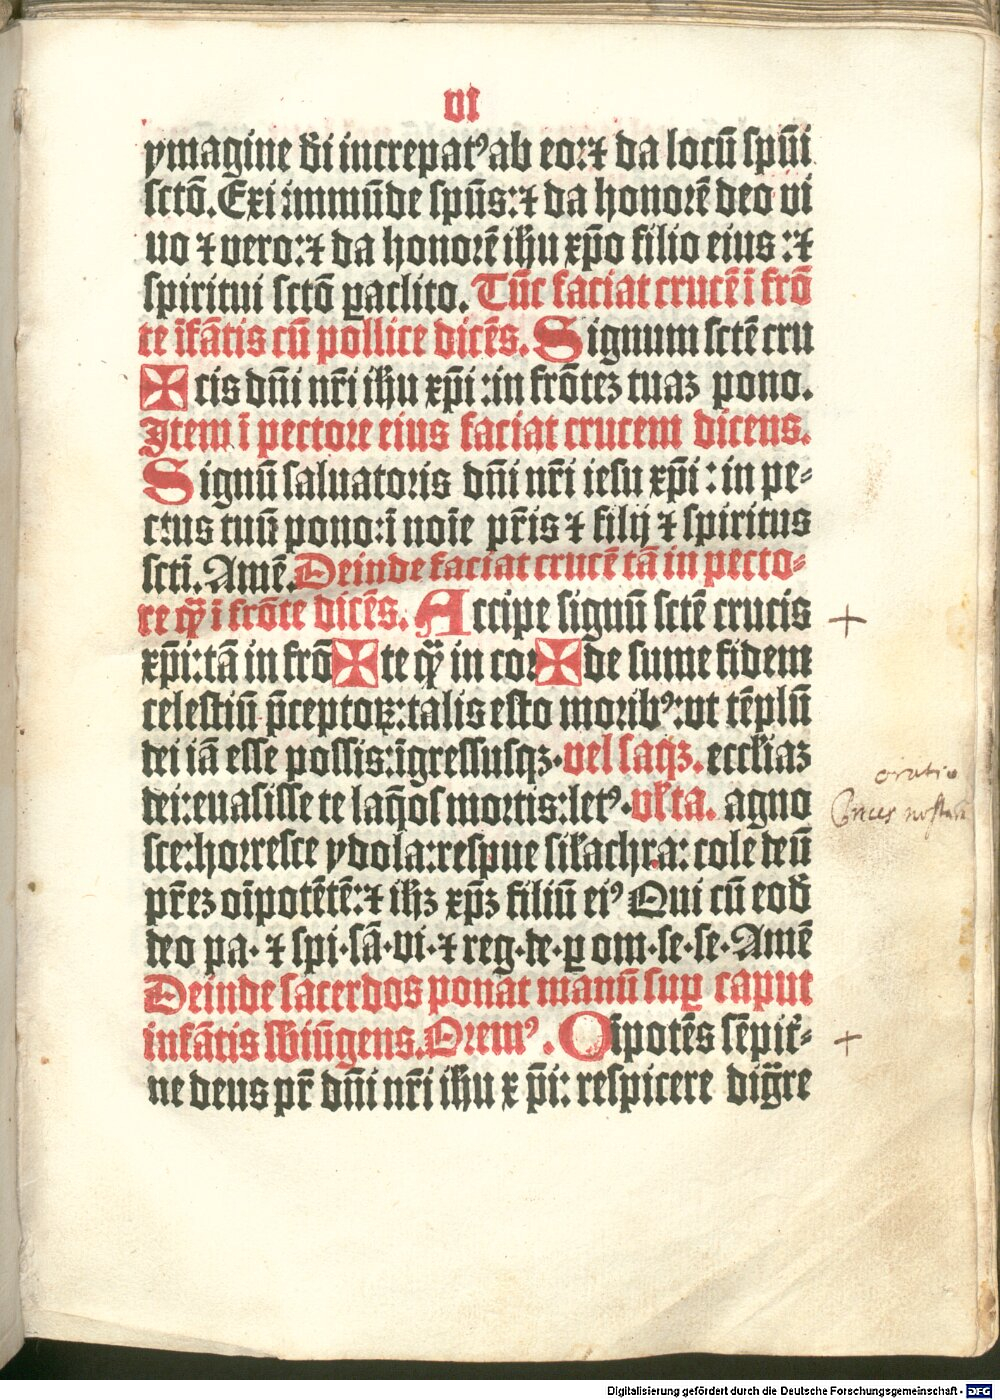 vi
ymagine di increpatꝰ ab eo:⁊ da locū spūi
sctō. Exi īmmūde spūs:⁊ da honorē deo vi
uo ⁊ vero:⁊ da honorē ihu xp̄o filio eius :⁊
spiritui sctō ꝑaclito. Tūc faciat crucē ī frō
te īfātis cū pollice dicēs. Signum sctē cru
cis dn̄i nr̄i ihu xp̄i :in frōteꝫ tuaꝫ pono.
Item ī pectore eius faciat crucem dicens.
Signū saluatoris dn̄i nr̄i iesu xp̄i : in pe⸗
ctus tuū pono:ī noīe pr̄is ⁊ filij ⁊ spiritus
scti. Amē. Deinde faciat crucē tā in pecto⸗
re qꝫ̄ ī frōte dicēs. Accipe signū sctē crucis
xp̄i:tā in frō te qꝫ̄ in cor de sume fidem
celestiū p̄ceptoꝝ:talis esto moribꝰ:vt tēplū
dei iā esse possis:īgressusqꝫ·vel saqꝫ. eccl'iaꝫ
dei:euasisse te laq̄os mortis:letꝰ. vl'ta. agno
sce:horresce ydola:respue sil'achra: cole deū
pr̄eꝫ oīpotētē:⁊ ihꝫ xp̄ꝫ filiū eiꝰ Qui cū eod̄
deo pa· ⁊ spi·sā·vi·⁊ reg·de·ꝑ om·se·se·Amē
Deinde sacerdos ponat manū suꝑ caput
infātis sbiūgens. Oremꝰ. Oīpotēs sēpit'⸗
ne deus pr̄ dn̄i nr̄i ihu x p̄i: respicere dig̅re
+
oratio
+
Digitalisierung gefördert durch die Deutsche Forschungsgemeinschaft - DFG